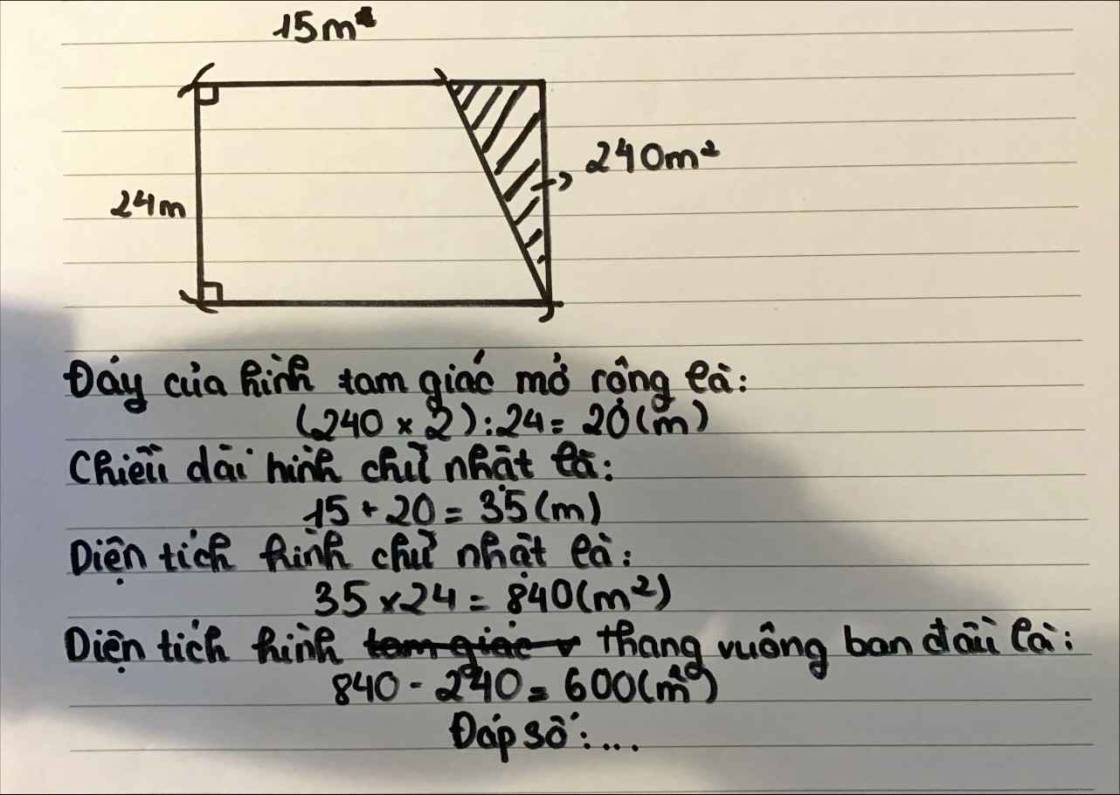 15m
240m²
24m
Đáy của hình tam giác mở rộng là:
(240 × 2) : 24 = 20 (m)
Chiều dài hình chữ nhật là:
15 + 20 = 35 (m)
Diện tích hình chữ nhật là:
35 × 24 = 840 (m²)
Diện tích hình tam giác v thang vuông ban đầu là:
840 - 240 = 600 (m²)
Đáp số:...